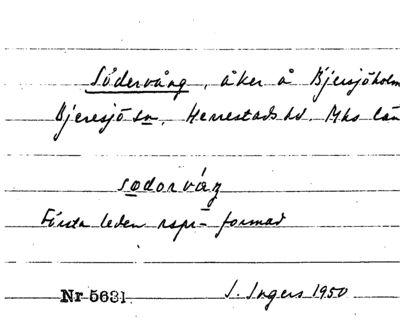 Södervång, åker å Bjersjöholm
Bjeresjö sn, Herrestads hd. Mhs län
sodorváŋ
Första leden rspr-formad
Nr 5631. I. Ingers 1950